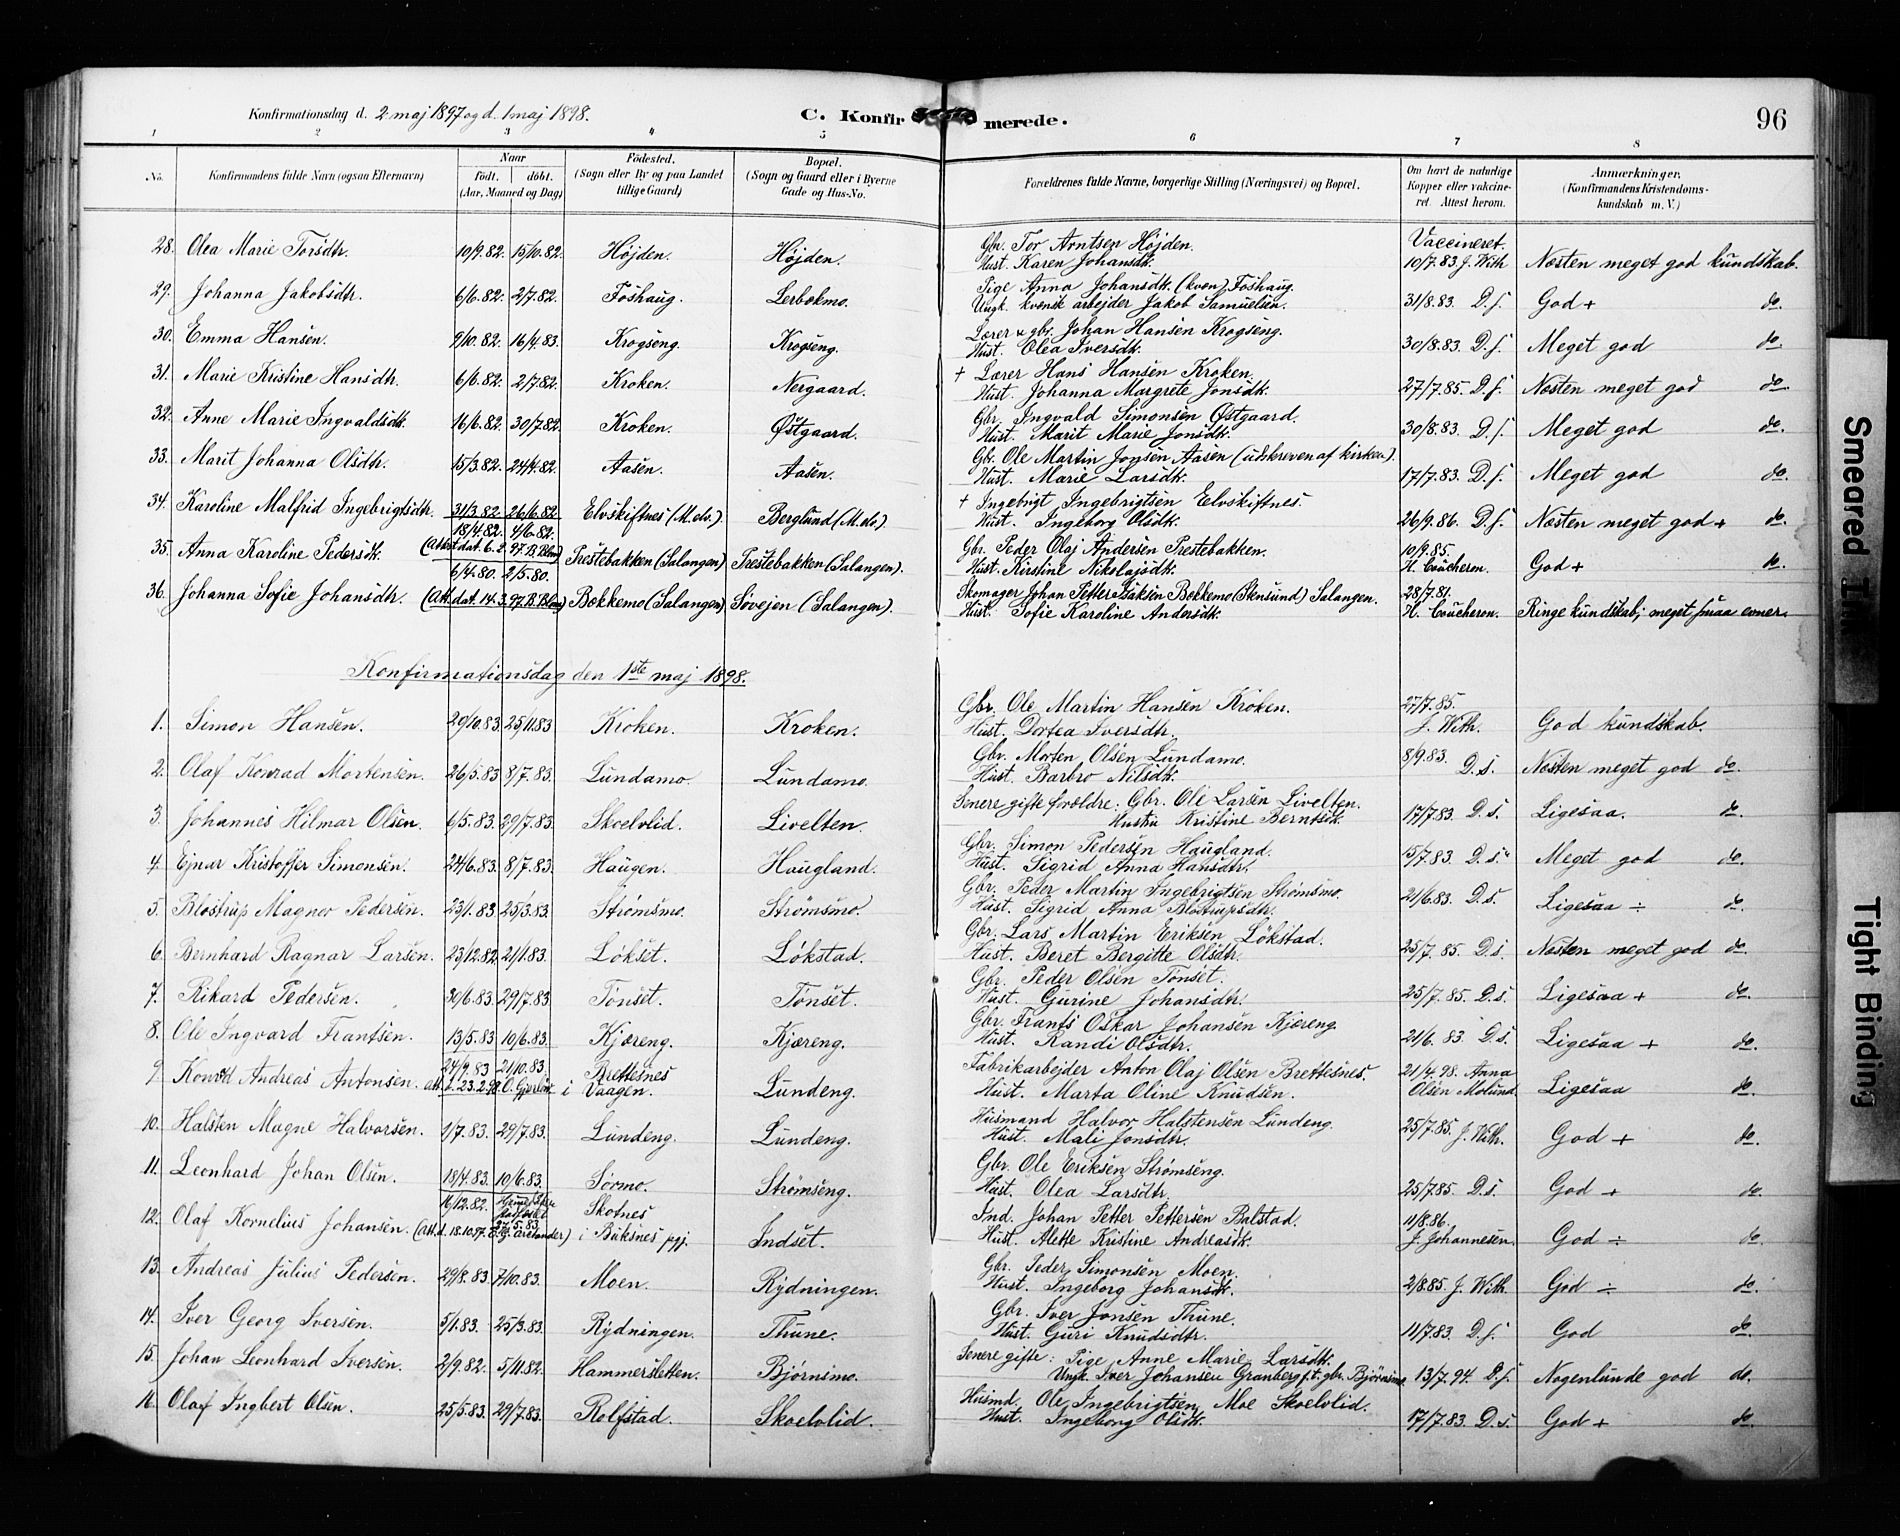 Konfirmationsdag d. 2 maj 1897 og d. 1 maj 1898.
C. Konfirmerede.
96
1 2 3 4 5 6 7 8
No. Konfirmandens fulde Navn (ogsaa Efternavn) Naar født. døbt. (Aar, Maaned og Dag) Fødested. (Sogn eller By og paa Landet tillige Gaard) Bopæl. (Sogn og Gaard eller i Byerne Gade og Hus-No. Forældrenes fulde Navne, borgerlige Stilling (Næringsvei) og Bopæl. Om havt de naturlige Kopper eller vaccineret. Attest herom. Anmærkninger. (Konfirmandens Kristendomskundskab m. V.)
28. Olea Marie Torsdtr. 10/9.82. 15/10.82. Højden. Højden. Gbr. Tor Arntsen Højden. Hust. Karen Johansdtr. Vaccineret. 10/7.83 J. With Næsten meget god kundskab.
29. Johanna Jakobsdtr. 6/6.82. 2/7.82. Foshaug. Lerbekmo. Pige Anna Johansdtr. (kvæn) Foshaug. Ungk. kvensk arbejder Jakob Samuelsen. 31/8.83. D.s. God + do.
30. Emma Hansen. 9/10.82. 16/4.83. Krogseng. Krogseng. Lærer & gbr. Johan Hansen Krogseng. Hust. Olea Iversdtr. 30/8.83. D.s. Meget god do.
31. Marie Kristine Hansdtr. 6/6.82. 2/7.82. Kroken. Nergaard. + Lærer Hans Hansen Kroken. Hust. Johanna Margrete Jonsdtr. 27/7.85. D.s. Næsten meget god do.
32. Anne Marie Ingvaldsdtr. 16/6.82. 30/7.82. Kroken. Østgaard. Gbr. Ingvald Simonsen Østgaard. Hust. Marit Marie Jonsdtr. 30/8.83. D.s. Meget god do.
33. Marit Johanna Olsdtr. 15/3.82. 24/4.82. Aasen. Aasen. Gbr. Ole Martin Jonsen Aasen (udskreven af kirken). Hust. Marie Larsdtr. 17/7.83. D.s. Meget god do.
34. Karoline Malfrid Ingebrigtsdtr. 31/3.82. 26/6.82. Elvskiftnes (M.elv.). Berglund (M.elv.). + Ingebrigt Ingebrigtsen Elvskiftnes. Hust. Ingeborg Olsdtr. 26/9.86. D.s. Næsten meget god + do.
35. Anna Karoline Pedersdtr. 18/4.82. 4/6.82. (Attest dat. 6.2.97. B. Blom) Prestebakken (Salangen) Prestebakken (Salangen). Gbr. Peder Olaj Andersen Prestebakken. Hust. Kirstine Nikolajsdtr. 10/9.85. H. Coucheron. God + do.
36. Johanna Sofie Johansdtr. 6/4.80. 2/5.80. (Att. dat. 14.3.97. B. Blom) Bekkemo (Salangen) Søvejen (Salangen). Skomager Johan Petter Isaksen Bekkemo (Stensund) Salangen. Hust. Sofie Karoline Andersdtr. 28/7.81. H. Coucheron. Ringe kundskab; meget smaa evner.
Konfirmationsdag den 1ste maj 1898.
1. Simon Hansen. 29/10.83. 25/11.83 Kroken. Kroken. Gbr. Ole Martin Hansen Kroken. Hust. Dortea Iversdtr. 27/7.85. J. With. God kundskab.
2. Olaf Konrad Mortensen. 26/5.83 8/7.83. Lundamo. Lundamo. Gbr. Morten Olsen Lundamo. Hust. Barbro Nilsdtr. 8/9.83. D.s. Næsten meget god do.
3. Johannes Hilmar Olsen. 6/5.83. 29/7.83. Skoelvlid. Livelten. Senere gifte forældre: Gbr. Ole Larsen Livelten. Hustru Kristine Berntsdtr. 17/7.83. D.s. Ligesaa. do.
4. Ejnar Kristoffer Simonsen. 24/6.83. 8/7.83. Haugen. Haugland. Gbr. Simon Pedersen Haugland. Hust. Sigrid Anna Hansdtr. 15/7.83. D.s. Meget god do.
5. Blostrup Magnor Pedersen. 23/1.83. 25/3.83. Strømsmo. Strømsmo. Gbr. Peder Martin Ingebrigtsen Strømsmo. Hust. Sigrid Anna Blostrupsdtr. 21/6.83. D.s. Ligesaa ÷ do.
6. Bernhard Ragnar Larsen. 23/12.82. 21/1.83. Løkset. Løkstad. Gbr. Lars Martin Eriksen Løkstad. Hust. Beret Bergitte Olsdtr. 25/7.85. D.s. Næsten meget god do.
7. Rikard Pedersen. 30/6.83. 29/7.83 Tønset. Tønset. Gbr. Peder Olsen Tønset. Hust. Gurine Johansdtr. 25/7.85. D.s. Ligesaa + do.
8. Ole Ingvard Frantsen. 13/5.83 10/6.83. Kjæreng. Kjæreng. Gbr. Frants Oskar Johansen Kjæreng. Hust. Randi Olsdtr. 21/6.83. D.s. Ligesaa + do.
9. Konrad Andreas Antonsen. 24/9.83 21/10.83. att. d. 23.2.98. Brettesnes i Vaagen. Lundeng. Fabrikarbejder Anton Olaj Olsen Brettesnes. Hust. Marta Oline Knudsen. 21/4.98. Anna Olsen Molund. Ligesaa do.
10. Halsten Magne Halvorsen. 1/7.83. 29/7.83. Lundeng. Lundeng. Husmand Halvor Halstensen Lundeng. Hust. Mali Jonsdtr. 25/7.85. J. With. God + do.
11. Leonhard Johan Olsen. 18/4.83. 10/6.83. Sørmo. Strømseng. Gbr. Ole Eriksen Strømseng. Hust. Olea Larsdtr. 25/7.85. D.s. God + do.
12. Olaf Kornelius Johansen. 16/12.82. 5.83. (Att. d. 18.10.97. Skotnes i Buksnes pgj. Indset. Ind. Johan Petter Pettersen Balstad. Hust. Alette Kristine Andreasdtr. 11/8.86. J. Johannesen. God ÷ do.
13. Andreas Julius Pedersen. 29/8.83. 7/10.83. Moen. Rydningen. Gbr. Peder Simonsen Moen. Hust. Ingeborg Johansdtr. 2/8.85. J. With. God ÷ do.
14. Iver Georg Iversen. 5/1.83. 25/3.83. Rydningen. Thune. Gbr. Iver Jonsen Thune. Hust. Guri Knudsdtr. 11/7.83. D.s. God do.
15. Johan Leonhard Iversen. 2/9.82. 5/11.82. Hammersletten. Bjørnsmo. Senere gifte: Pige Anne Marie Larsdtr. Ungk. Iver Johansen Granberg f.t. gbr. Bjørnsmo. 13/7.94. D.s. Nogenlunde god do.
16. Olaf Ingbert Olsen. 25/5.83. 29/7.83. Rolfstad. Skoelvlid. Husmd. Ole Ingebrigtsen Moe Skoelvlid. Hust. Ingeborg Olsdtr. 17/7.83. D.s. God + do.
Smeared Ink
Tight Binding